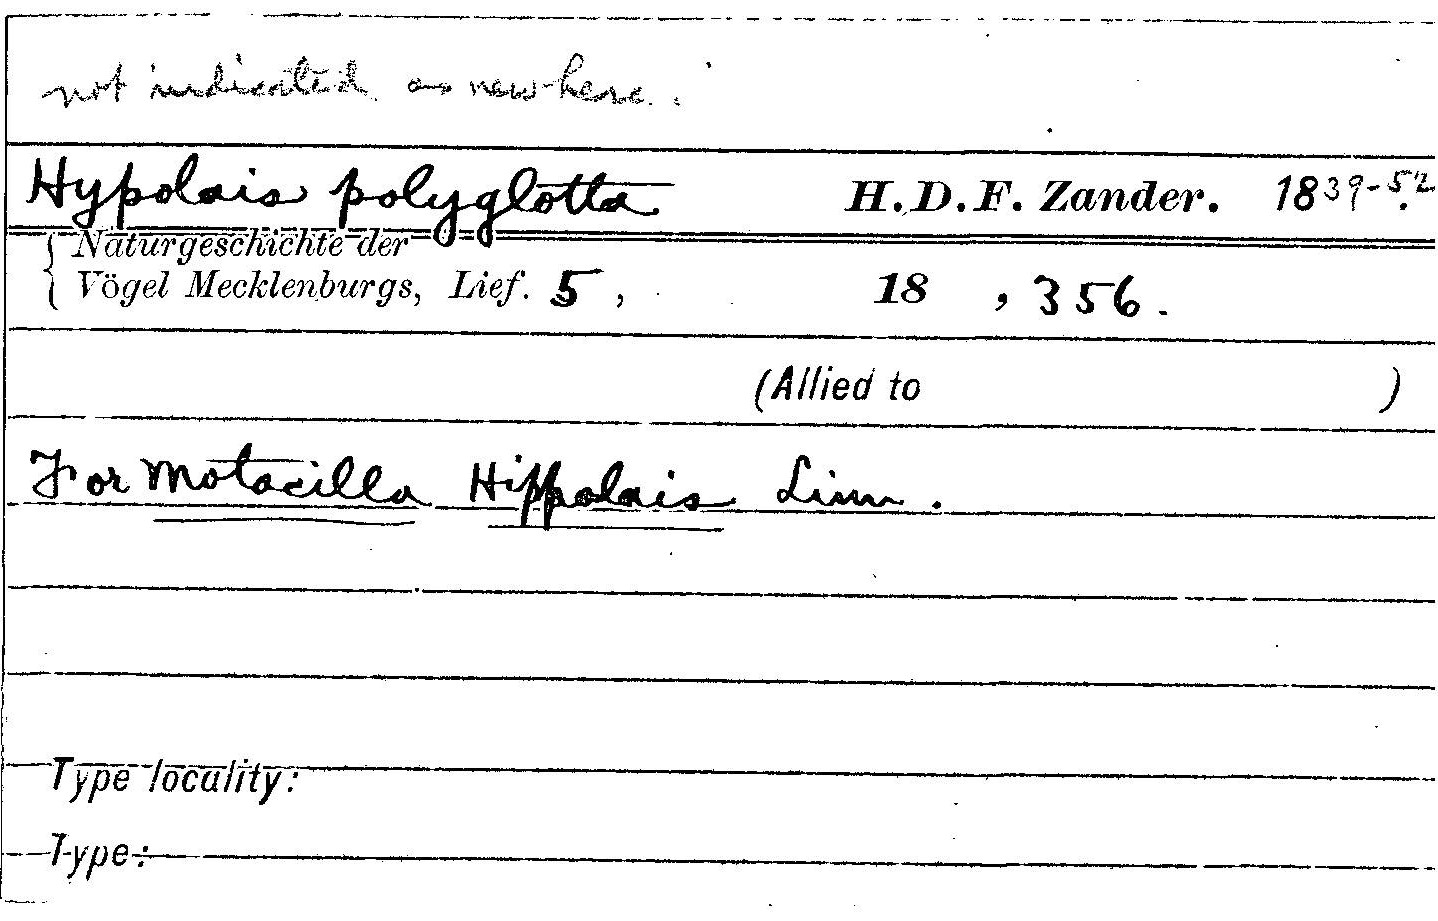 not indicated as new here.
Hypolais polyglotta H.D.F. Zander. 1839-52.
Naturgeschichte der
Vögel Mecklenburgs, Lief. 5, 18 , 356.
(Allied to )
For Motacilla Hippolais Linn.
Type locality:
Type: